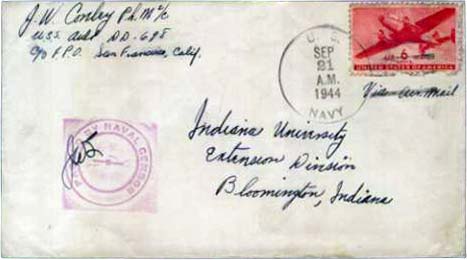 J. W. Conley Ph. M 2/c
U.S.S. DD-685
c/o F.P.O. San Francisco, Calif.
U. S.
SEP
21
A.M.
1944
NAVY
6
UNITED STATES OF AMERICA
Via Air Mail
PASSED BY NAVAL CENSOR
Indiana University
Extension Division
Bloomington, Indiana